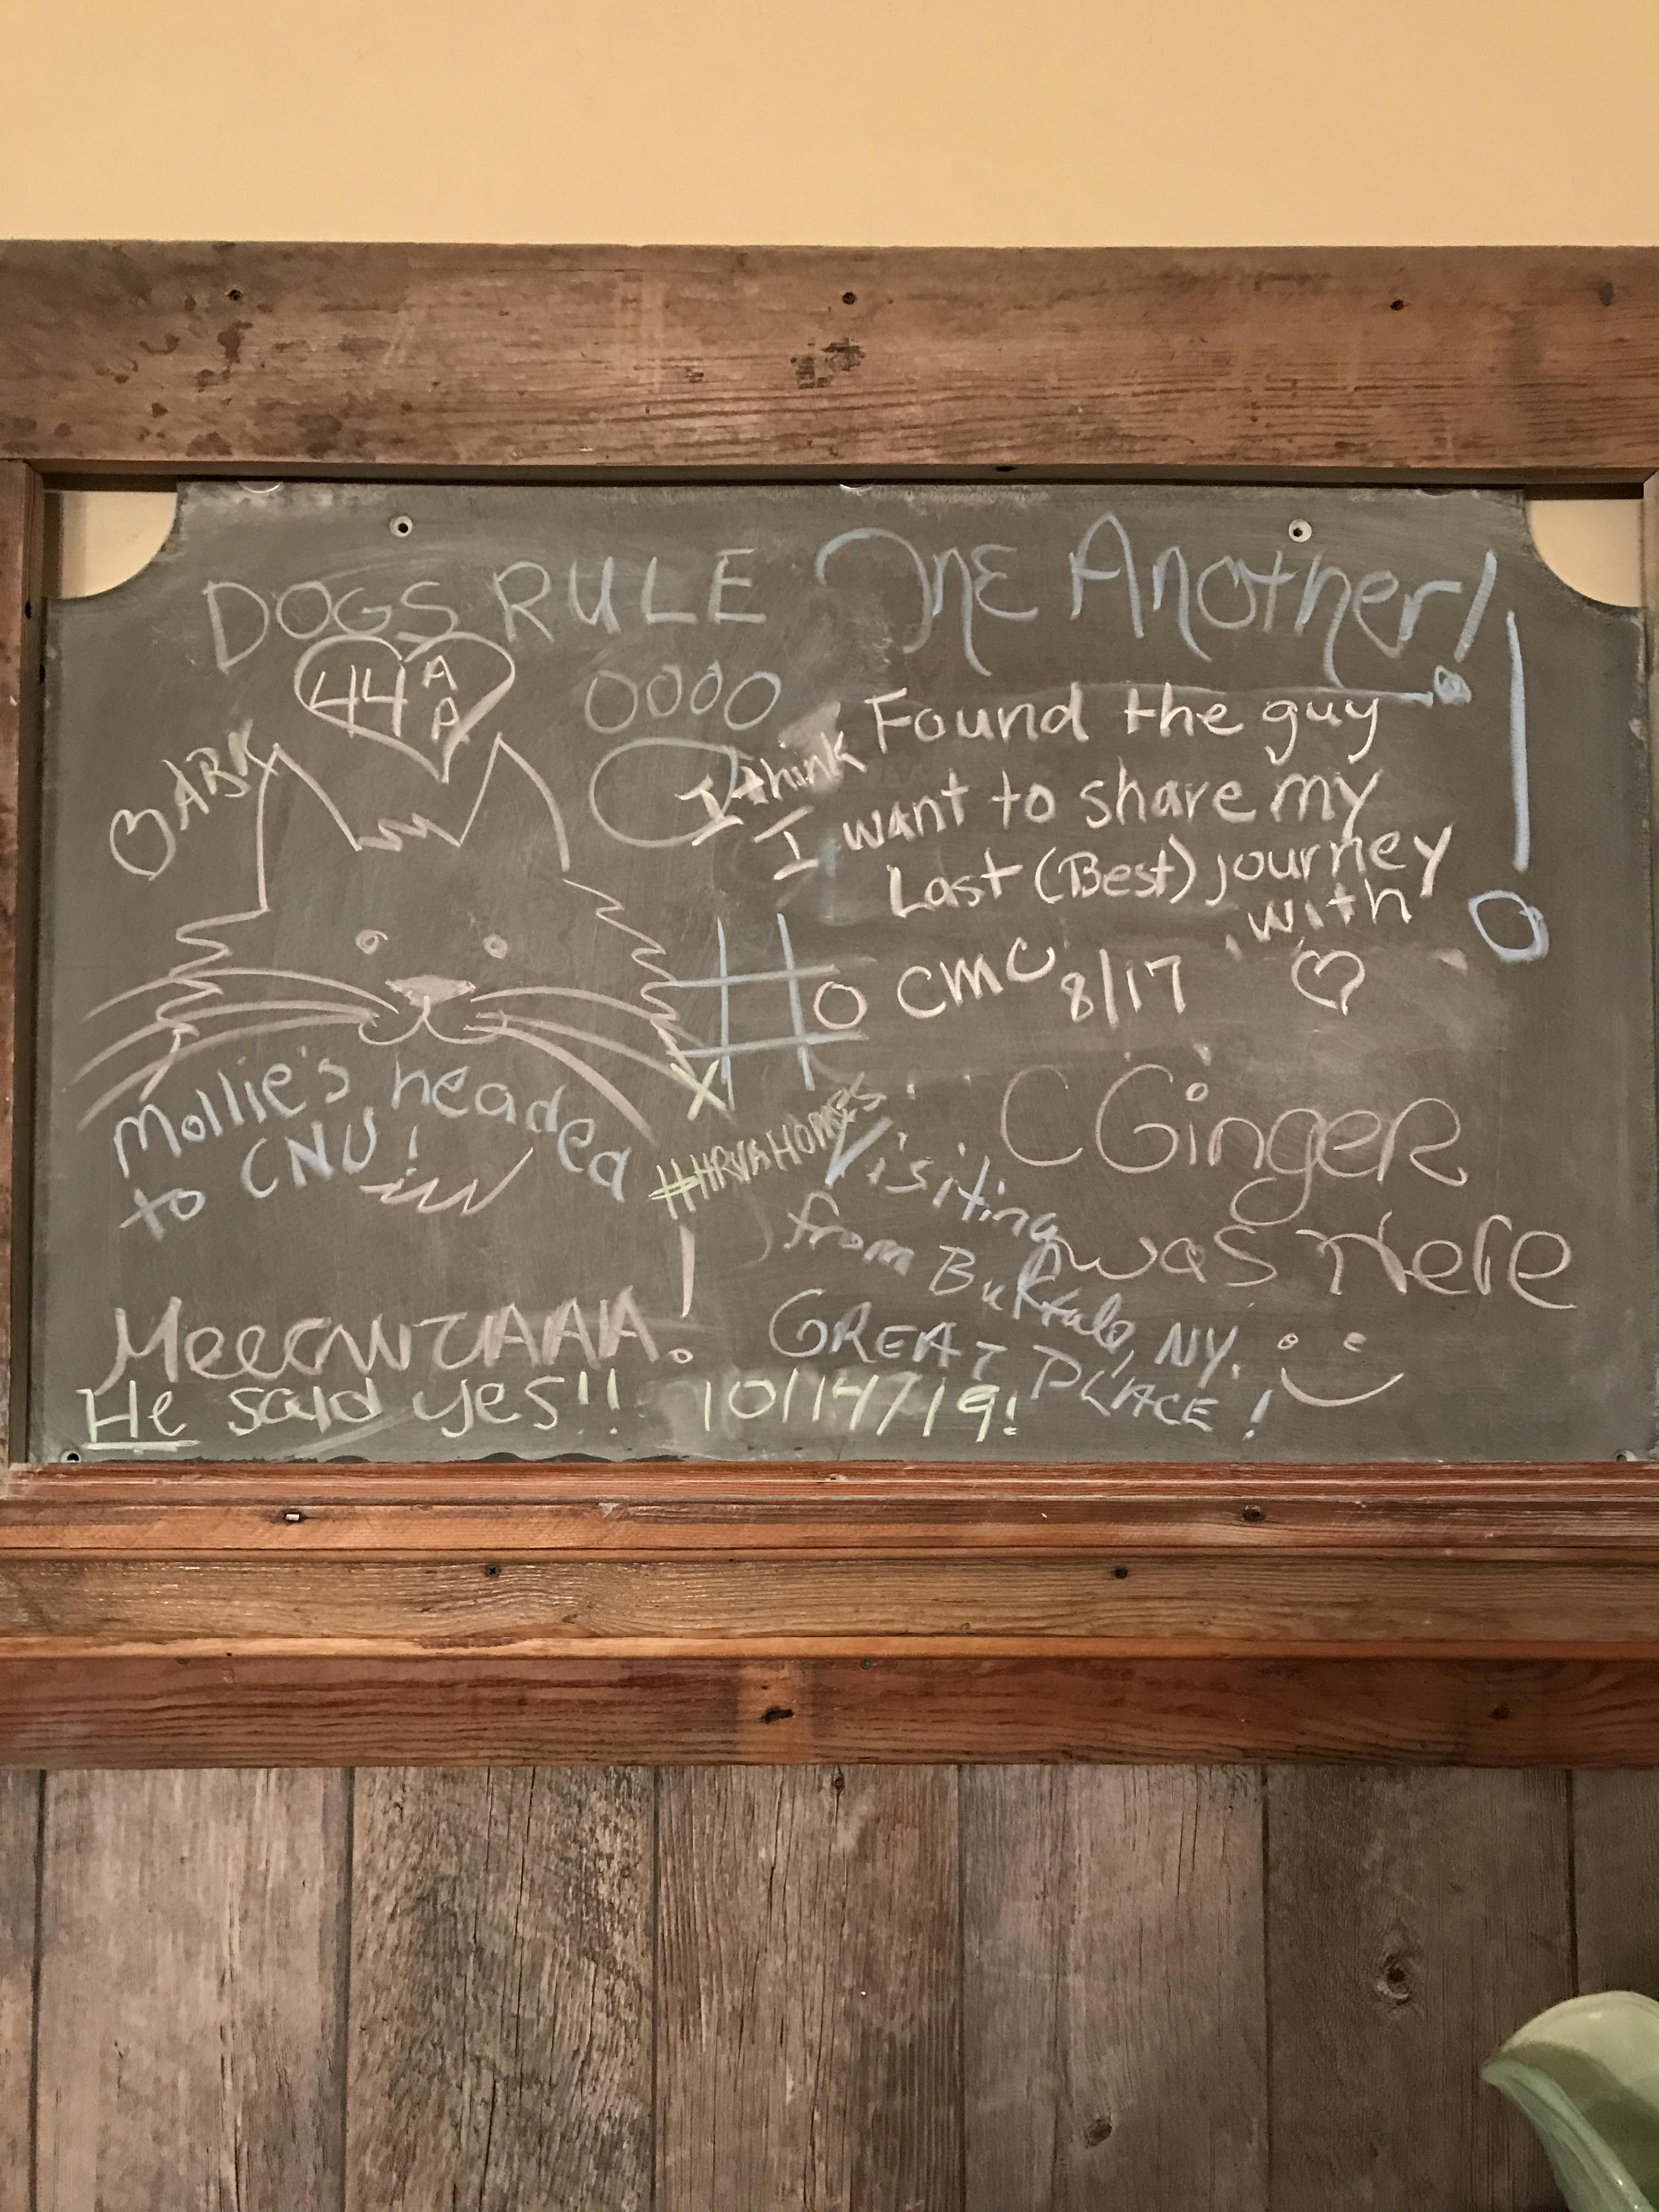 DOGS RULE One Another!
44 A P
BARK
I think Found the guy
I want to share my
Last (Best) journey
with
CMC 8/17
O
X
Mollie's headed
to CNU!
#HRVAHOMES
CGinger
was Here
Visiting
from Buffalo, NY.
GREAT PLACE!
MeeOWZAAA!
He said yes!! 10/17/19!